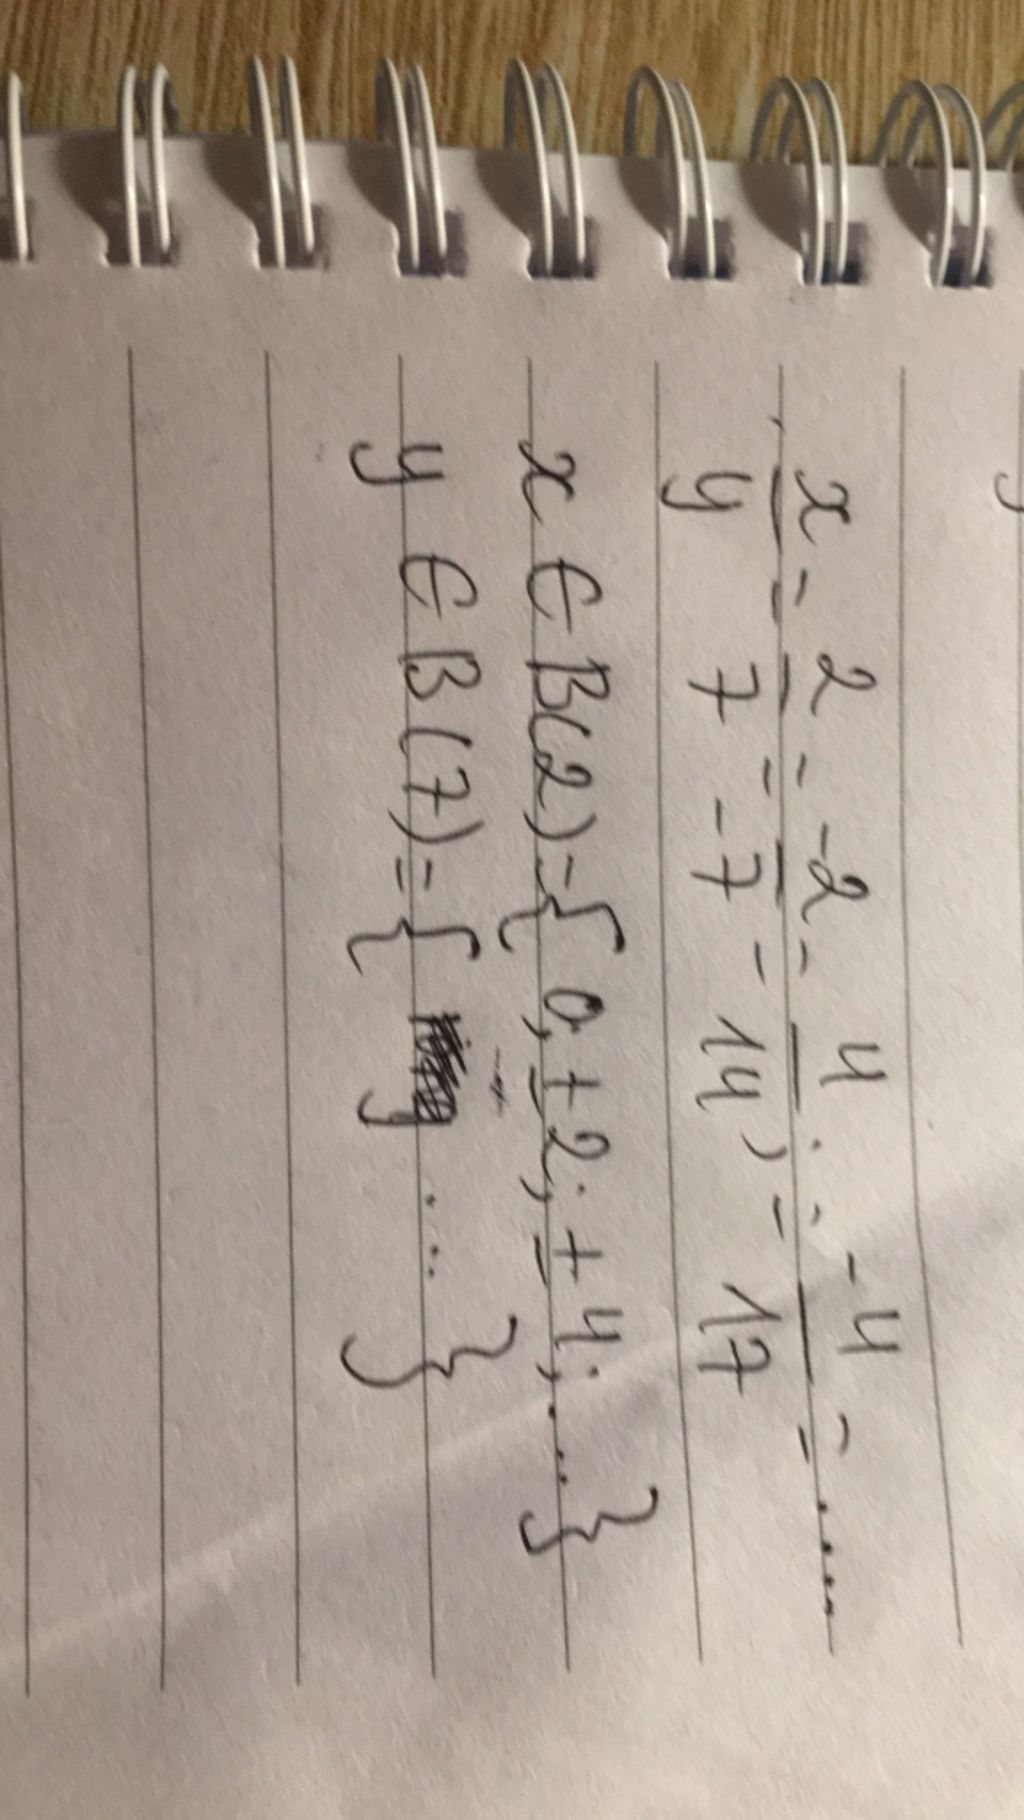 x/y = 2/7 = -2/-7 = 4/14 ; = -4/17 = .....
x ∈ B(2) = { 0; ±2; ±4; ... }
y ∈ B(7) = { ... }